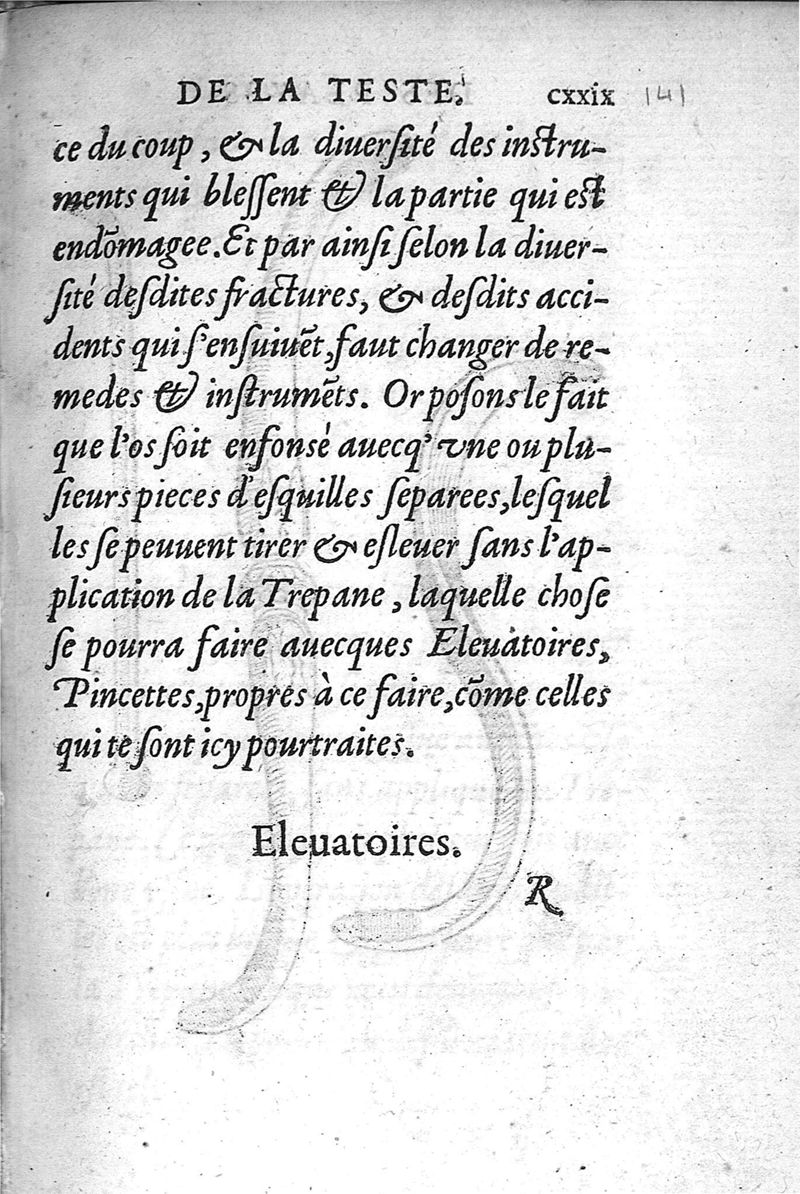 DE LA TESTE. cxxix 141
ce du coup, & la diuerſité des inſtru-
ments qui bleſſent & la partie qui eſt
endõmagee. Et par ainſi ſelon la diuer-
ſité deſdites fractures, & deſdits acci-
dents qui ſ'enſuiuẽt, faut changer de re-
medes & inſtrumẽts. Or poſons le fait
que l'os ſoit enfonsé auecq' vne ou plu-
ſieurs pieces d'eſquilles ſeparees, leſquel
les ſe peuuent tirer & eſleuer ſans l'ap-
plication de la Trepane, laquelle choſe
ſe pourra faire auecques Eleuatoires,
Pincettes, propres à ce faire, cõme celles
qui te ſont icy pourtraites.
Eleuatoires.
R